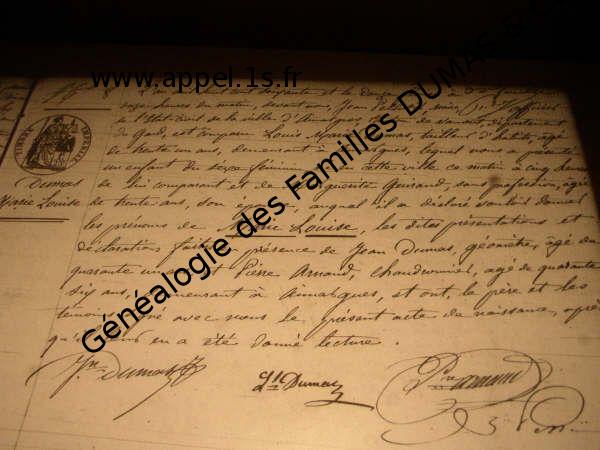 www.appel.1s.fr
Généalogie des Familles DUMAS &
Dumas
Marie Louise
et le
onze heures du matin, devant nous, Jean
l'Etat Civil de la ville d'Aimargues, département
du Gard, est comparu Louis Dumas, tailleur d'habits, âgé
de trente un ans, demeurant à lequel nous a présenté
un enfant du sexe féminin, cette ville ce matin à cinq heures
de lui comparant et de Guiraud, sans profession, âgée
de trente ans, son auquel il a déclaré vouloir donner
les prénoms de Marie Louise, les dites présentations et
déclarations présence de Jean Dumas, géomètre, âgé de
quarante et Pierre Arnaud, chaudronnier, âgé de quarante
six ans, demeurant à Aimargues, et ont, le père et les
témoins avec nous le présent acte de naissance, après
qu'il en a été donné lecture.
Jn Dumas
Ls Dumas